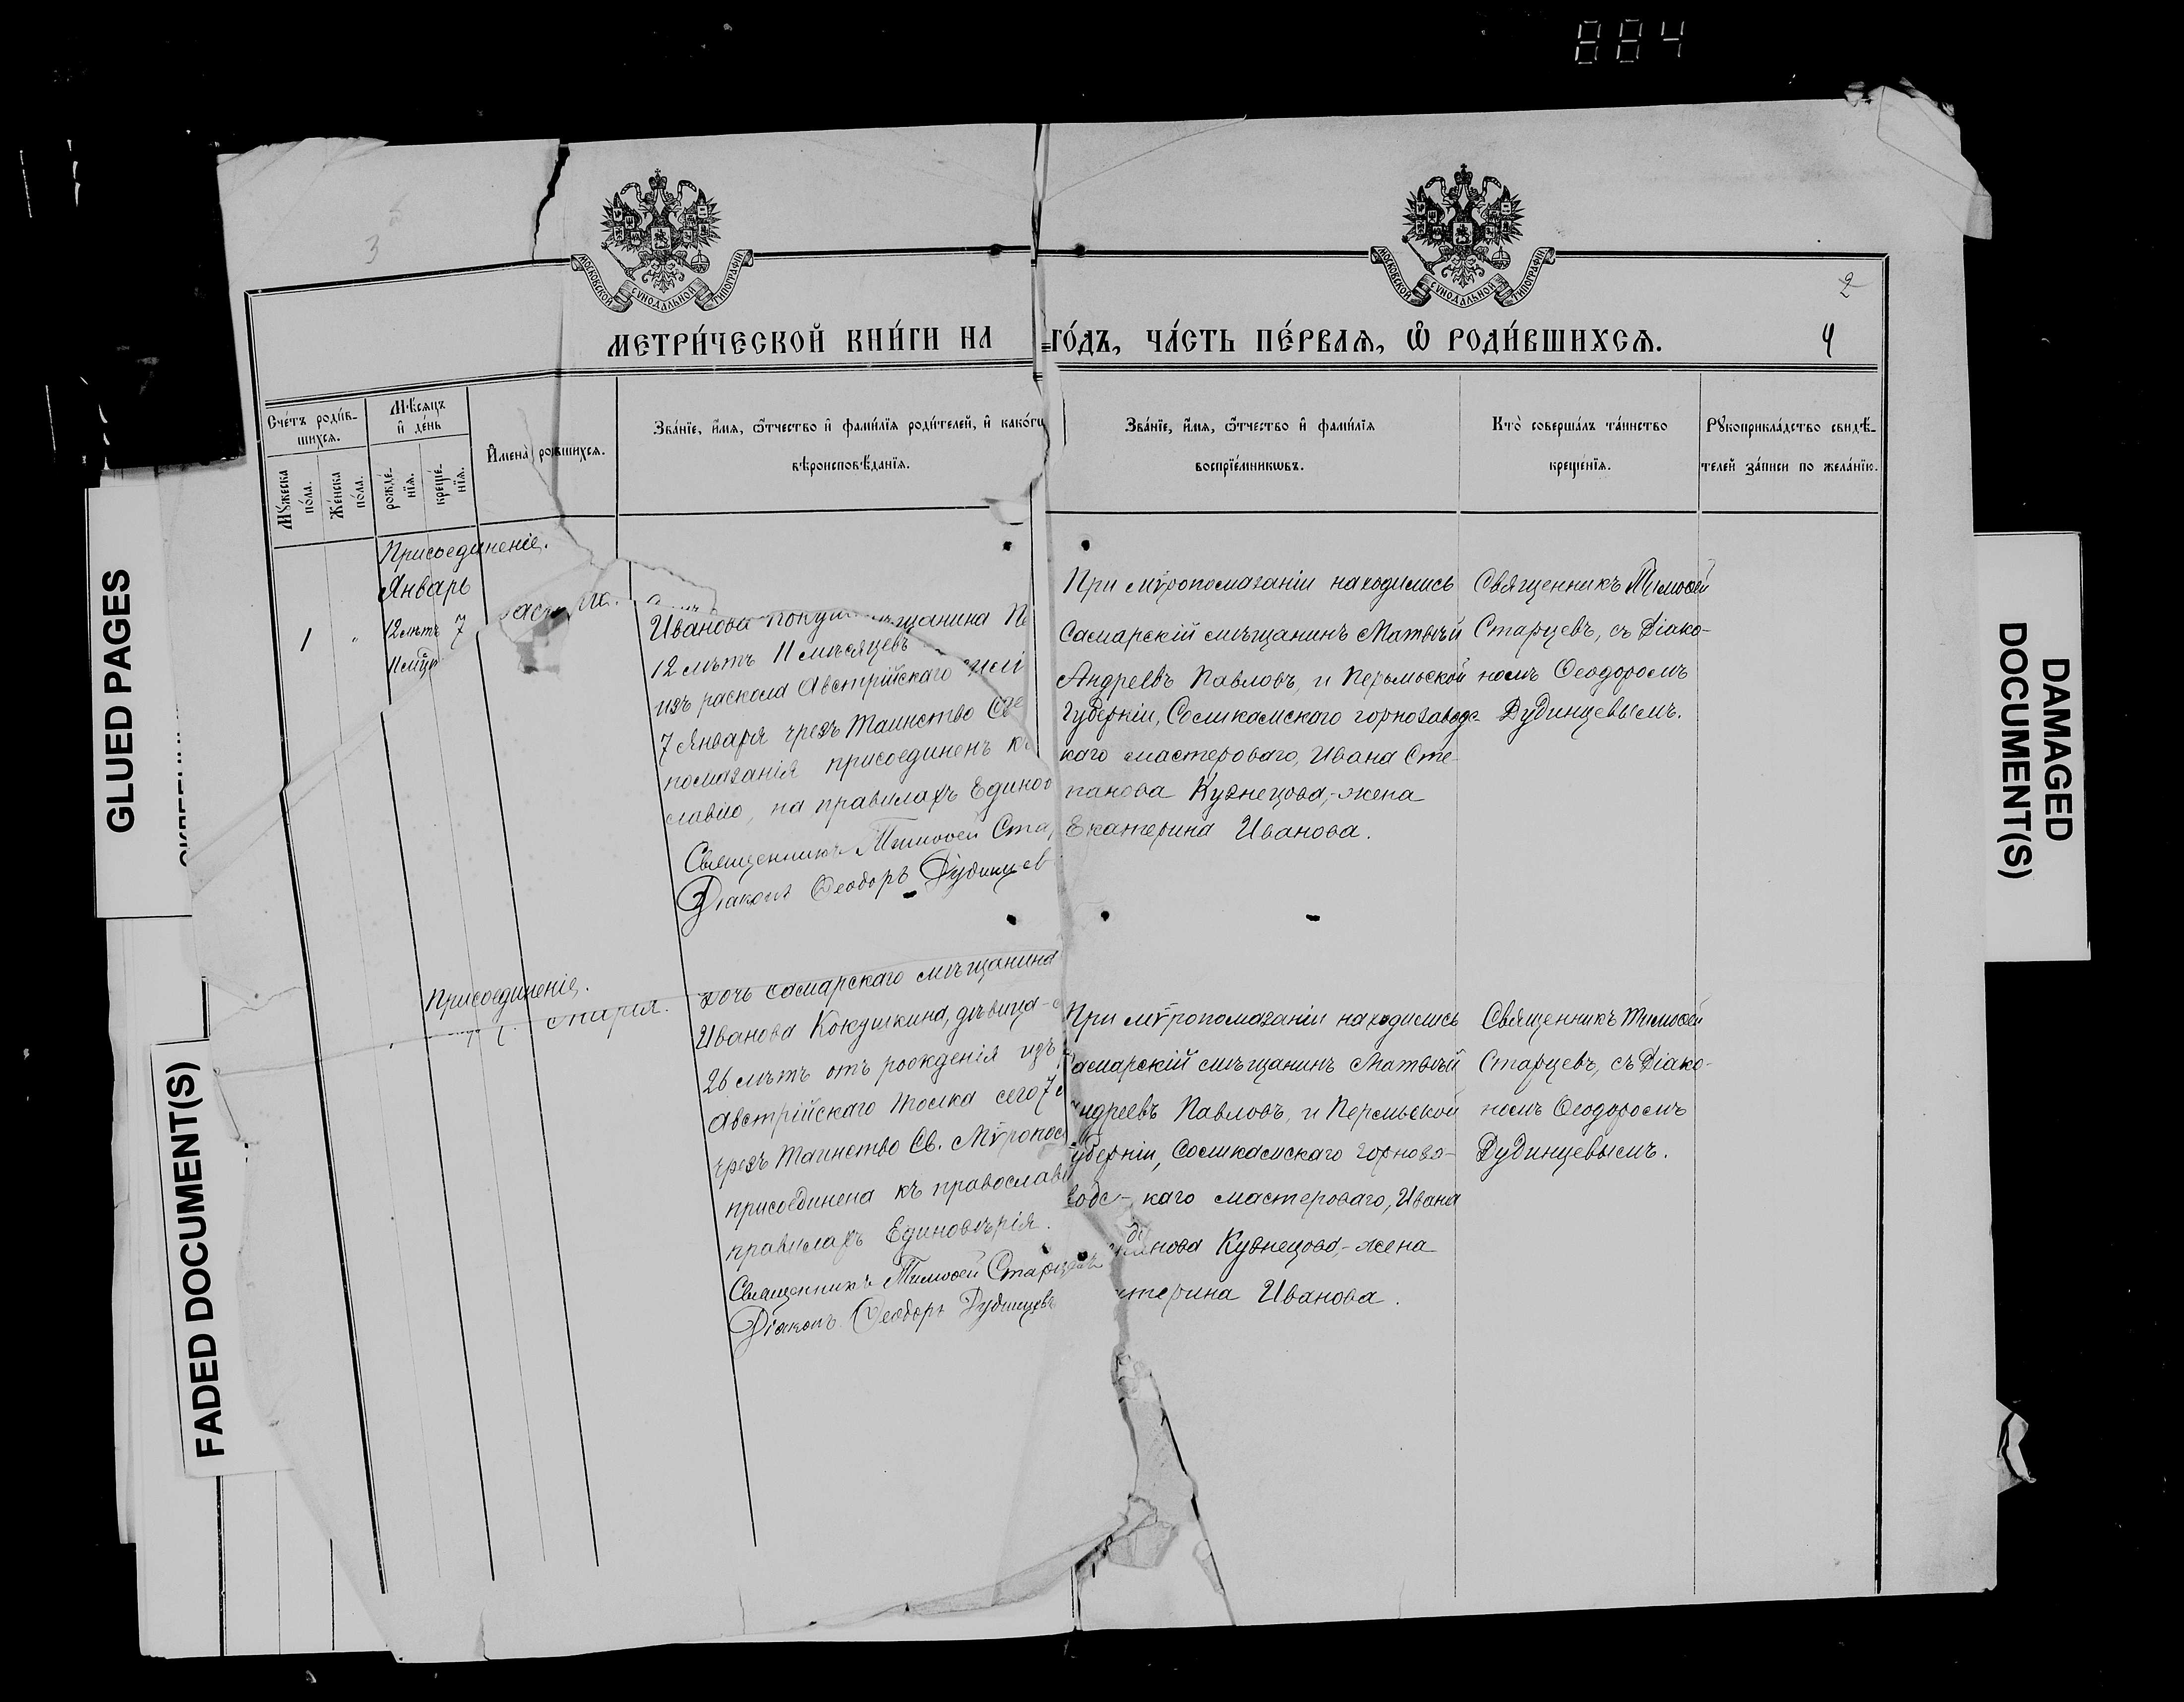 884
3
2
4
МОСКОВСКОЙ СѴНОДАЛЬНОЙ ТИПОГРАФІИ
МОСКОВСКОЙ СѴНОДАЛЬНОЙ ТИПОГРАФІИ
МЕТРИ́ЧЕСКОЙ КНИ́ГИ НА ГО́ДЪ, ЧА́СТЬ ПЕ́РВАѦ, Ѿ РОДИ́ВШИХСѦ.
Сче́тъ роди́в-
шихсѧ.
Мꙋжеска по́ла.
Же́нска по́ла.
Мѣ́сѧцъ и҆ де́нь
рожде́-
нїѧ.
креще́-
нїѧ.
И҆мена̀ ро вшихсѧ.
Зва́нїе, и҆́мѧ, ѻ҆́тчество и҆ фами́лїѧ роди́телей, и҆ како́гѡ
вѣроисповѣ́данїѧ.
Зва́нїе, и҆́мѧ, ѻ҆́тчество и҆ фами́лїѧ
воспрїе́мникѡвъ.
Кто̀ соверша́лъ та́инство
креще́нїѧ.
Рꙋкоприкла́дство свидѣ́-
телей за́писи по жела́нїю.
Присоединеніе.
Январь
1
12 лѣтъ
11 мѣс
7
Иванова щанина
12 лѣтъ 11 мѣсяцевъ
изъ раскола Австрійскаго
7 Января чрезъ Таинство Св
помазанія присоединенъ къ
славію, на правилахъ Единов
Священникъ Тимоѳей Ста
Діаконъ Ѳеодоръ Дудинцев
При мѵропомазаніи находились
Самарскій мѣщанинъ Матвѣй
Андреевъ Павловъ, и Перьмьской
Губерніи, Соликамского горнозаводс-
каго мастероваго, Ивана Сте-
панова Кузнецова,-жена
Екатерина Иванова.
Священникъ Тимоѳей
Старцевъ, съ Діако-
номъ Ѳеодоромъ
Дудинцевымъ.
Присоединеніе.
Марія.
дочь Самарскаго мѣщанина
Иванова Кокушкина, дѣвица-
26 лѣтъ отъ рожденія изъ
Австрійскаго толка сего 7
чрезъ Таинство Св. Мѵропо
присоединена къ православі
правилахъ Единовѣрія.
Священникъ Тимоѳей Старцевъ
Діаконъ Ѳеодоръ Дудинцевъ
При мѵропомазаніи находились
амарскій мѣщанинъ Матвѣй
ндреевъ Павловъ, и Пермьской
уберніи, Соликамскаго Горноза-
водс-каго мастероваго, Ивана
панова Кузнецова,-жена
терина Иванова.
Священникъ Тимоѳей
Старцевъ, съ Діако-
номъ Ѳеодоромъ
Дудинцевымъ.
GLUED PAGES
FADED DOCUMENT(S)
DAMAGED
DOCUMENT(S)